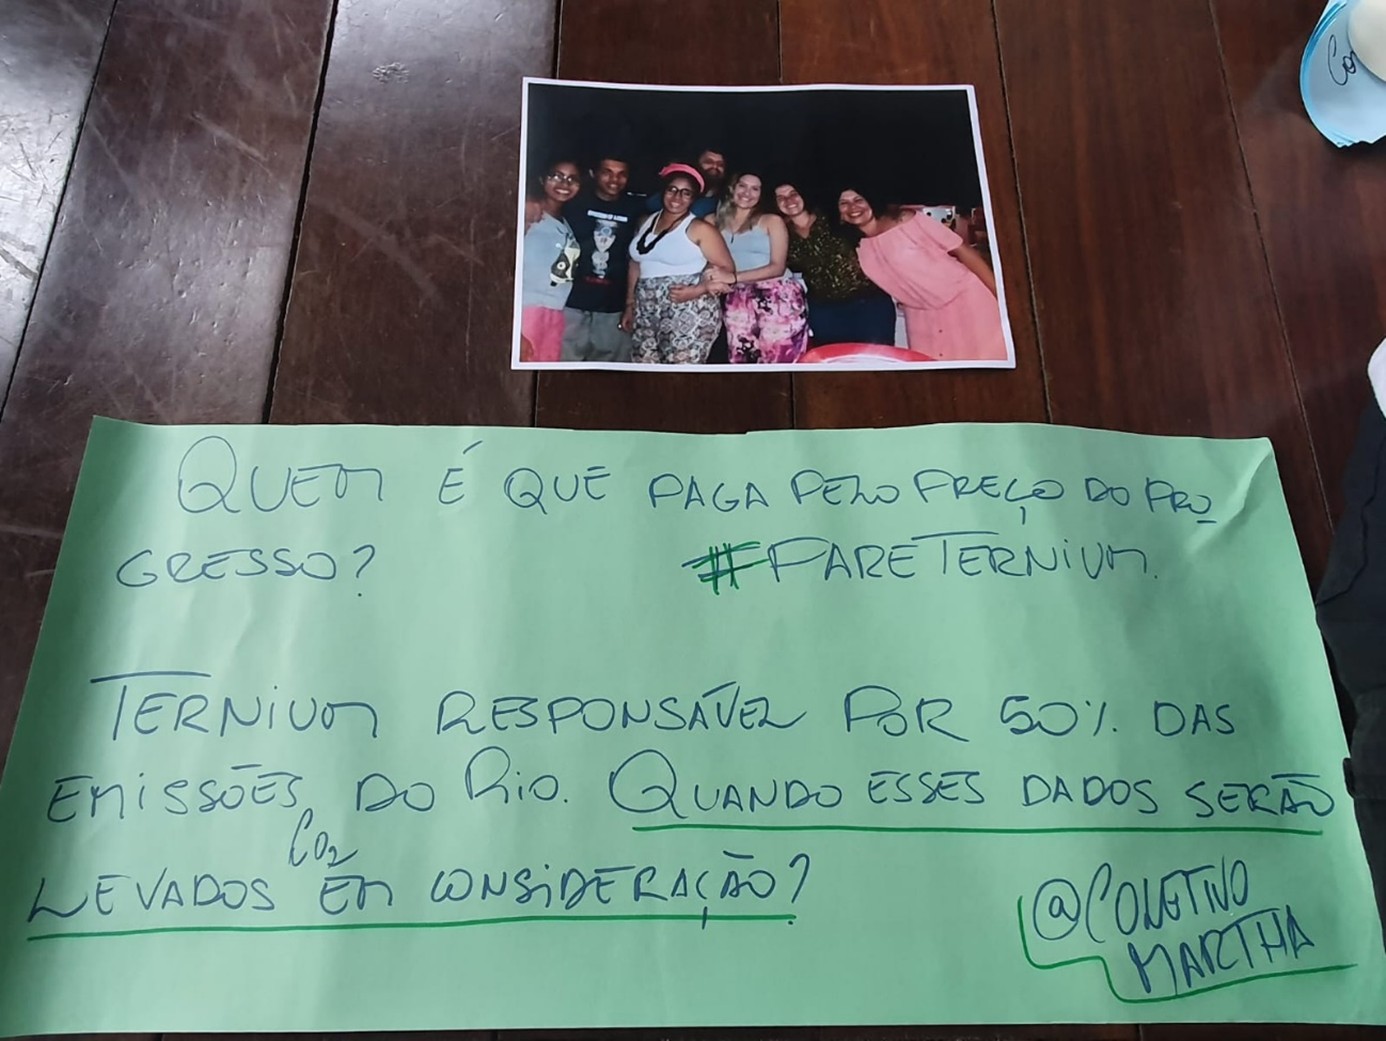 Co
QUEM É QUE PAGA PELO PREÇO DO PRO
GRESSO? #PARETERNIUM.
TERNIUM RESPONSÁVEL POR 50% DAS
EMISSÕES DO RIO. QUANDO ESSES DADOS SERÃO
CO2
LEVADOS EM CONSIDERAÇÃO?
@COLETIVO
MARTHA